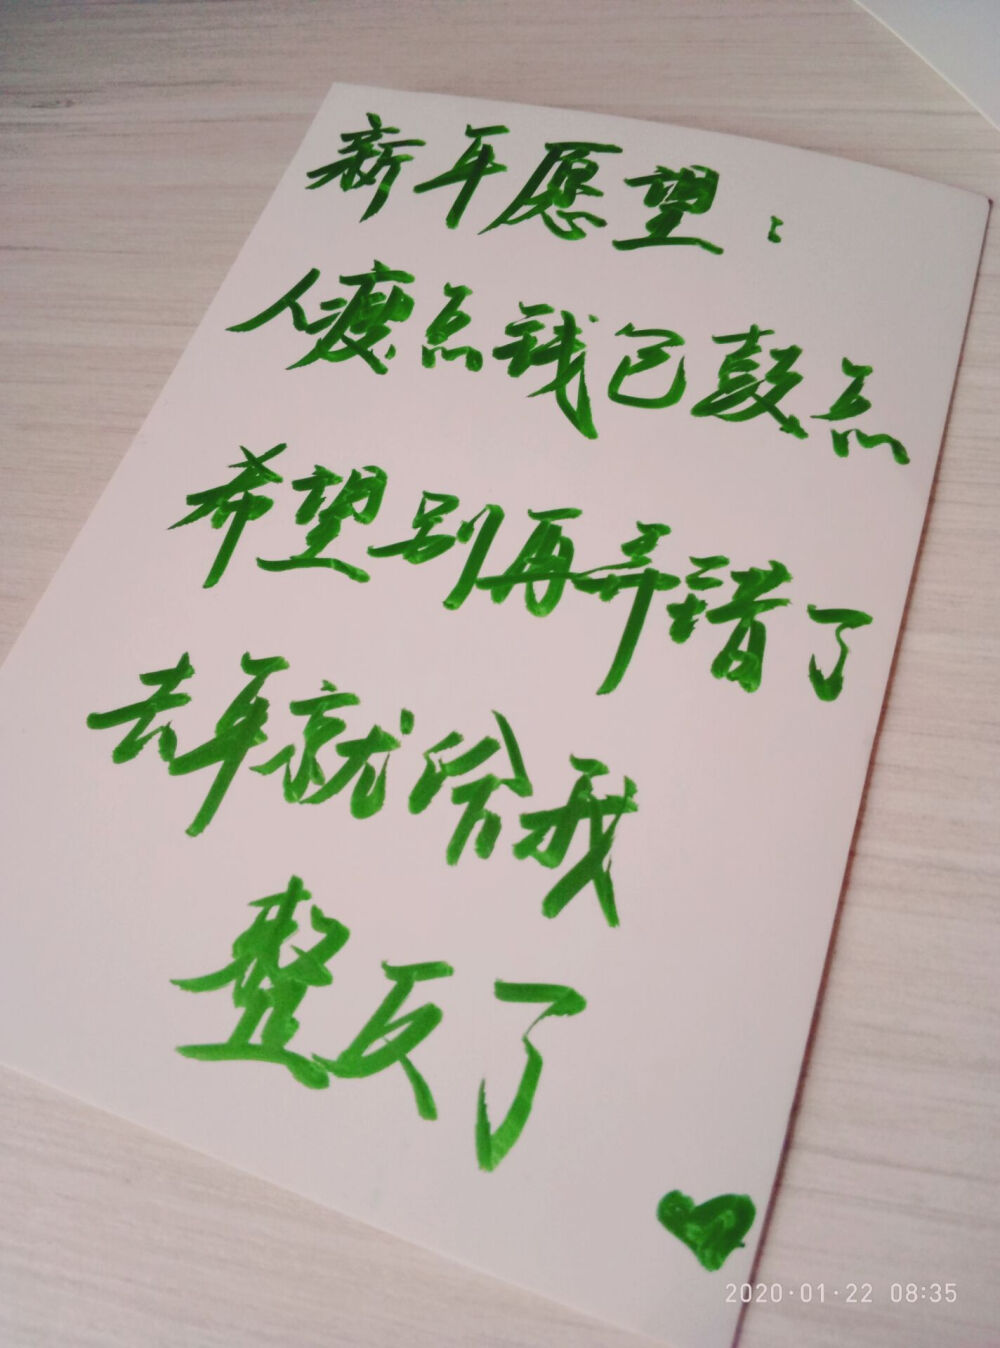 新年愿望：
人瘦点钱包鼓点
希望别再弄错了
去年就给我
整反了
2020·01·22 08:35